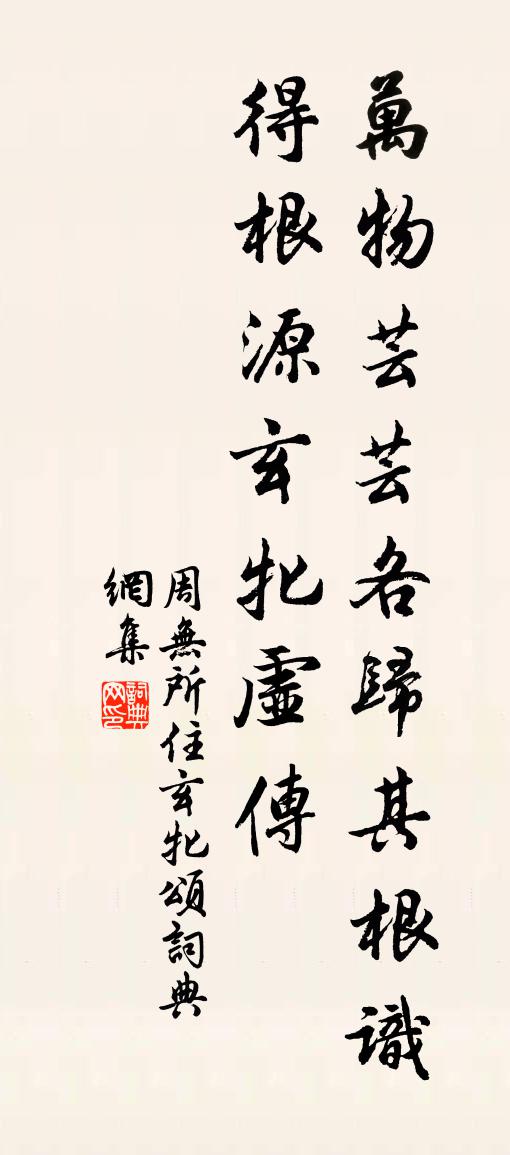 萬物芸芸各歸其根識
得根源玄牝虛傳
周無所住玄牝頌詞典
網集
詞典网印